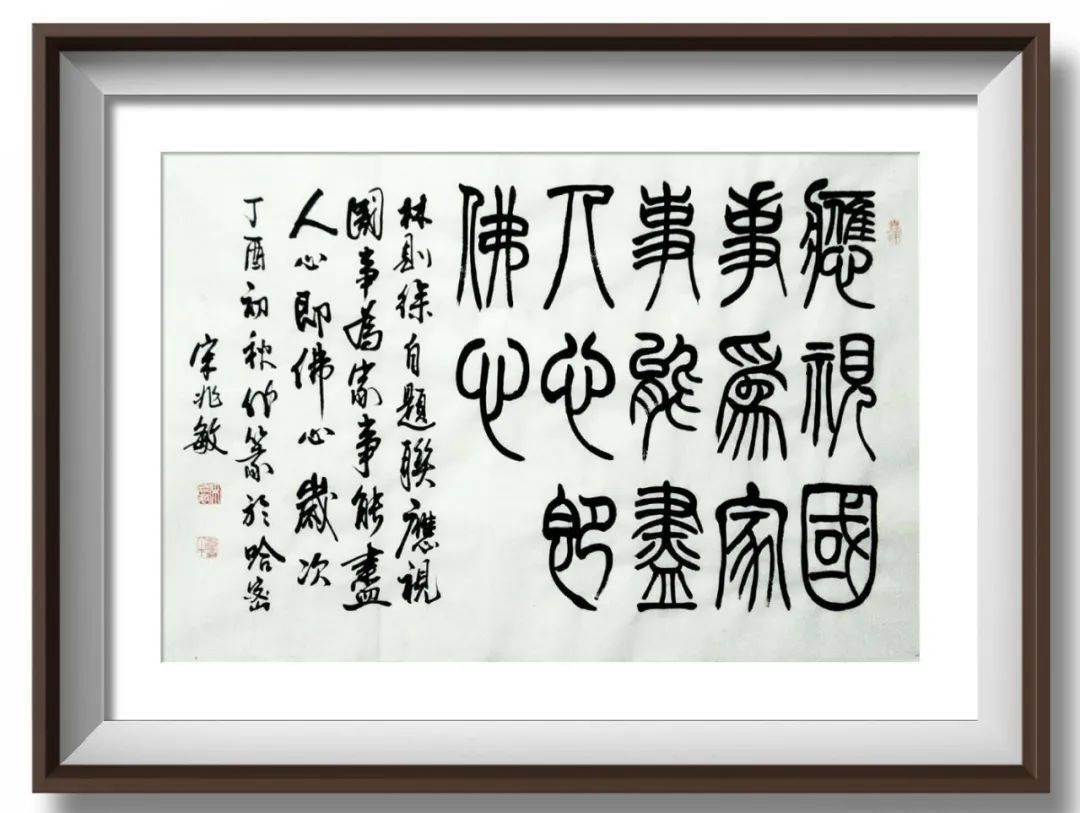 應視國
事為家
事能盡
人心即
佛心
林則徐自題聯應視
國事為家事能盡
人心即佛心歲次
丁酉初秋竹篆於哈密
宋兆敏